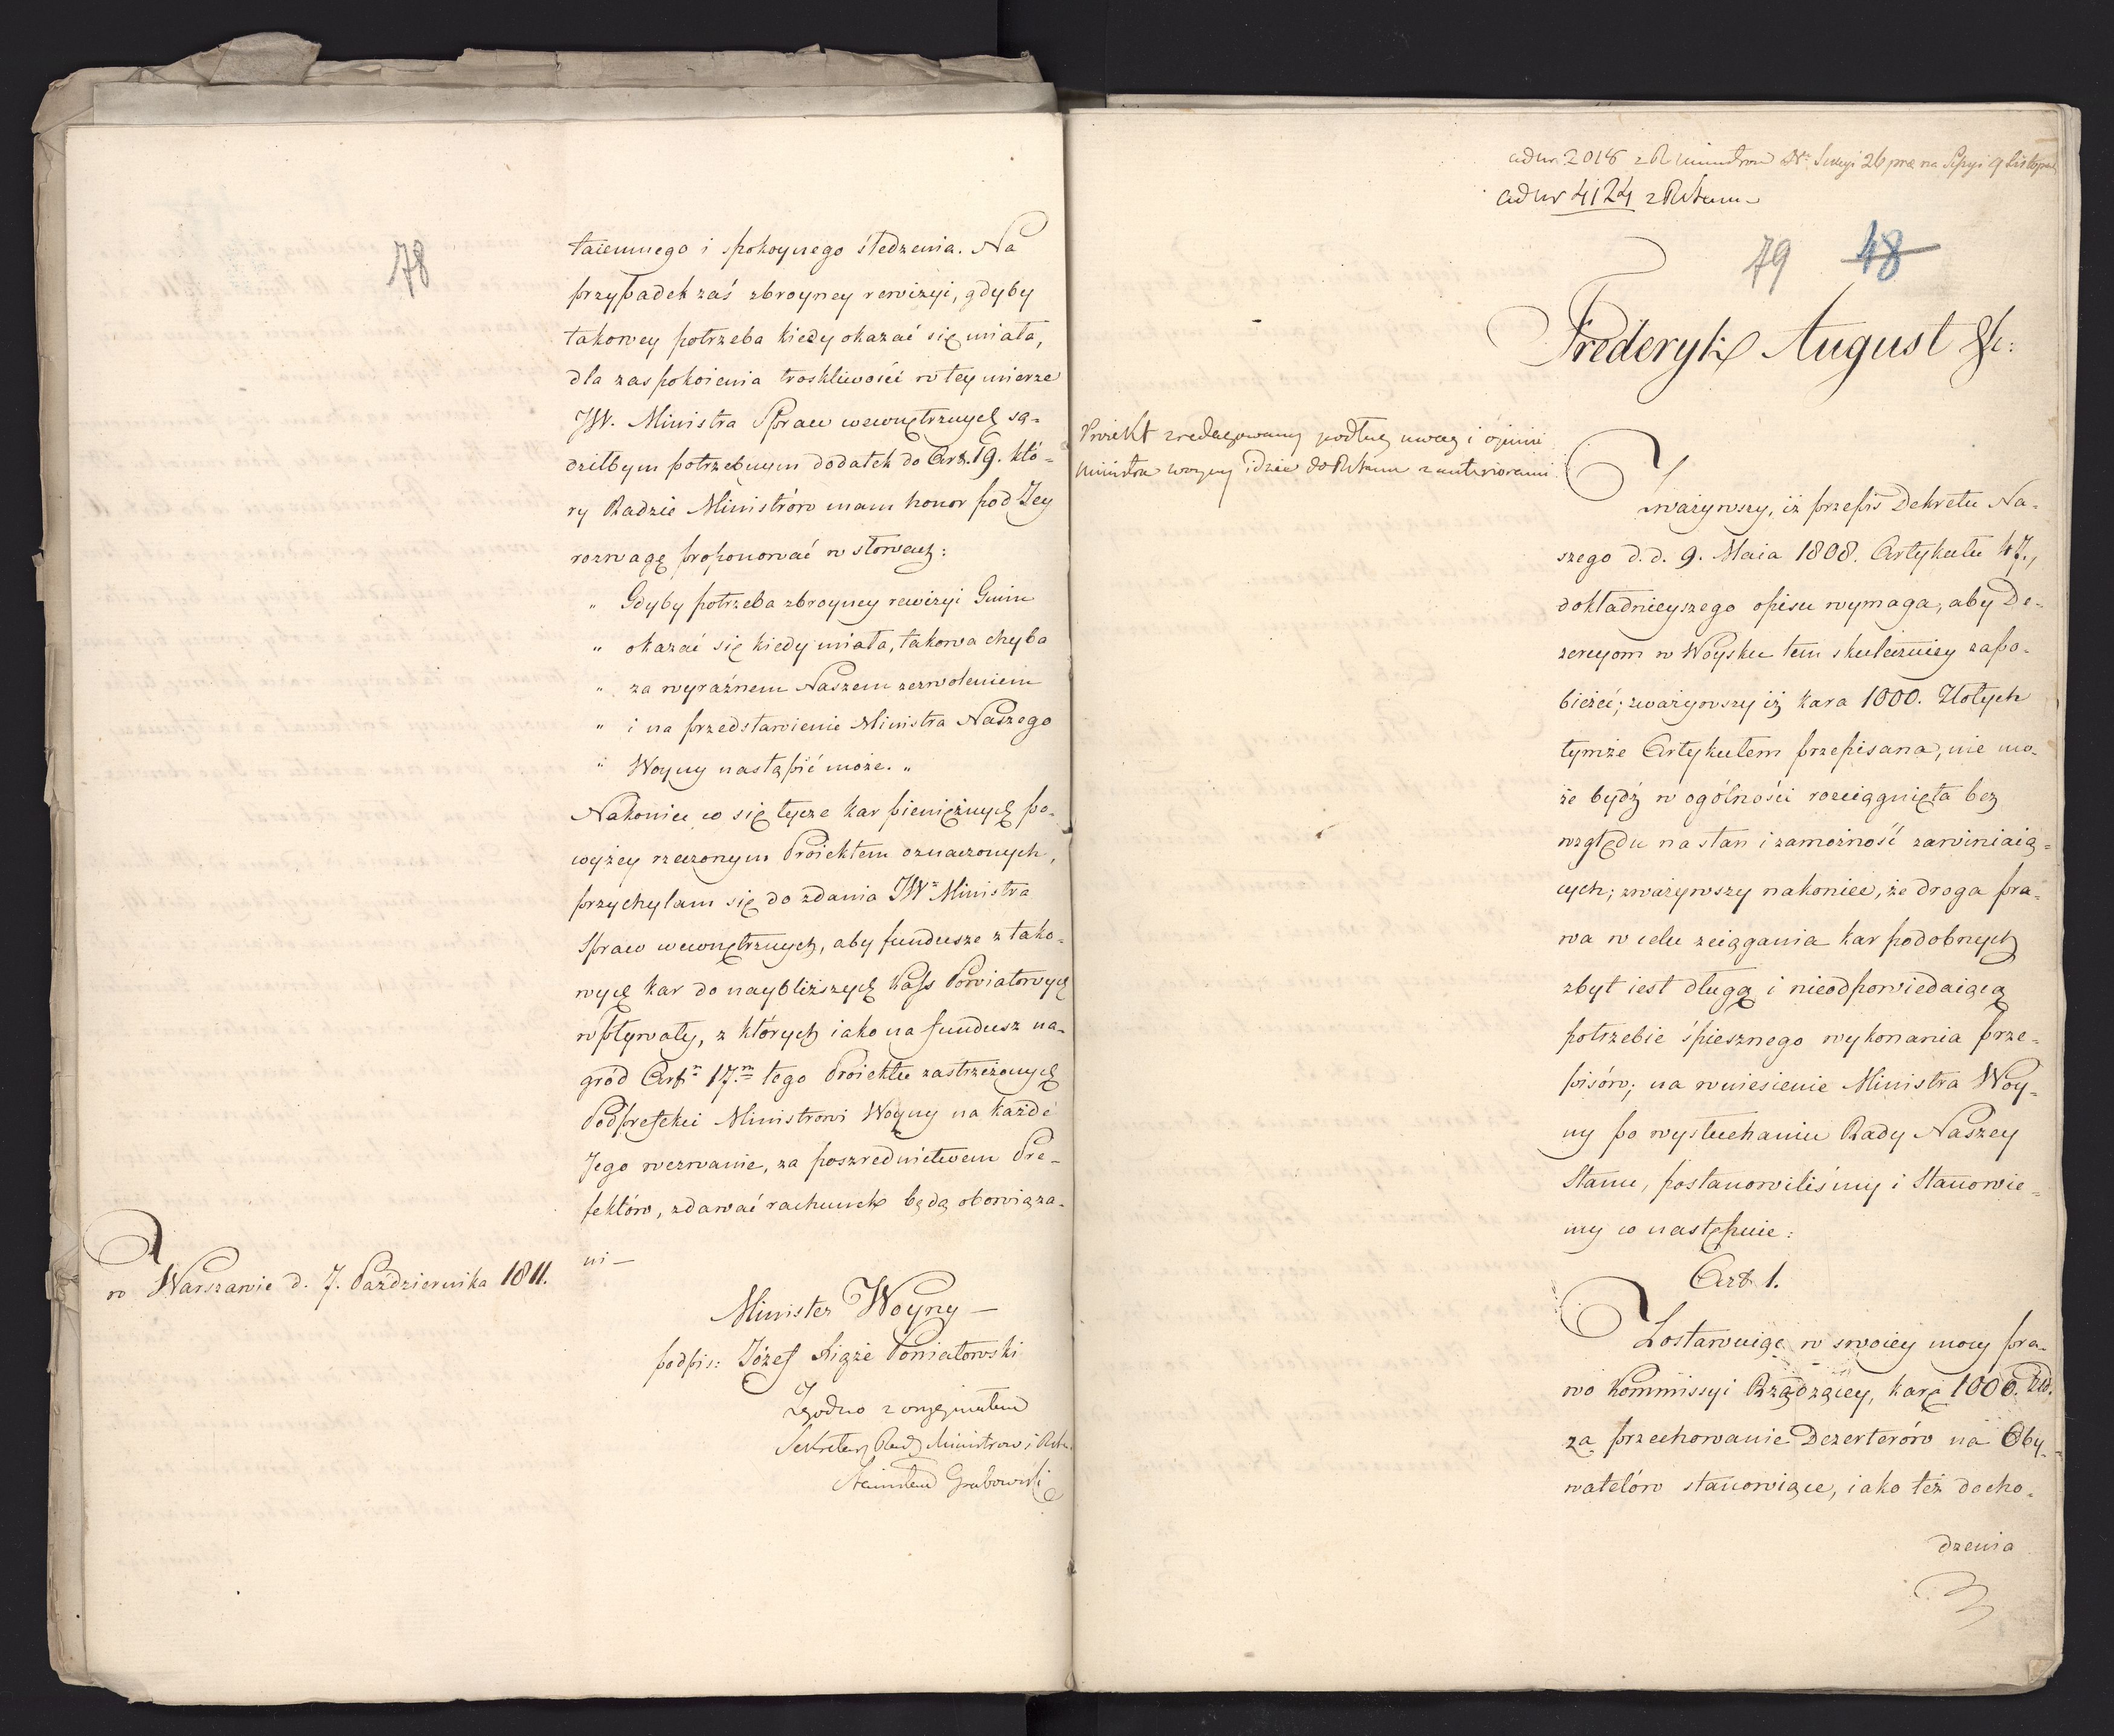 78
taiemnego i spokoynego śledzenia. Na
przypadek zaś zbroyney rewizyi, gdyby
takowey potrzeba kiedy okazać się miała,
dla zaspokoienia troskliwości w tey mierze
JW. Ministra Spraw wewnętrznych są-
dziłbym potrzebnym dodatek do Art. 19. któ-
ry Radzie Ministrów mam honor pod Jey
rozwagę proponować w słowach:
„ Gdyby potrzeba zbroyney rewizyi Gmin
„ okazać się kiedy miała, takowa chyba
„ za wyraźnem Naszem zezwoleniem
„ i na przedstawienie Ministra Naszego
„ Woyny nastąpić może. „
Nakoniec co się tycze kar pieniężnych po-
wyżey rzeczonym Proiektem oznaczonych,
przychylam się do zdania JWº Ministra
Spraw wewnętrznych, aby fundusze z tako-
wych kar do naybliższych Kass Powiatowych
wpływały, z których iako na fundusz na-
gród Artm 17.m tego Proiektu zastrzeżonych
Podprefekci Ministrowi Woyny na każde
Jego wezwanie, za pośrednictwem Pre-
fektów, zdawać rachunek będą obowiąza-
ni —
w Warszawie d. 7. Października 1811.
Minister Woyny —
podpis: Józef Xiąże Poniatowski
Zgodno z oryginałem
Sekretarz Rady Ministrów i
Stanisław Grabowski
ad nr 2018 z R Ministrów Nr Sessyi 26 na Sessyi 9 Listopad
ad nr 4124 z R Stanu
79 48
Frederyk August &c:
Proiekt zredagowany podług uwag i opinii
Ministra woyny idzie do R Stanu z anterioraami
Zważywszy, iż przepis Dekretu Na-
szego d. d. 9. Maia 1808. Artykułu 47.,
dokładnieyszego opisu wymaga, aby De-
zercyom w Woysku tem skuteczniey zapo-
bieżeć; zważywszy iż kara 1000. Złotych
tymże Artykułem przepisana, nie mo-
że bydź w ogólności rozciągnięta bez
względu na stan i zamożność zawiniaią-
cych; zważywszy nakoniec, że droga pra-
wa w celu zciągania kar podobnych
zbyt iest długą i nieodpowiedaiącą
potrzebie śpiesznego wykonania prze-
pisów; na wniesienie Ministra Woy-
ny po wysłuchaniu Rady Naszey
Stanu, postanowiliśmy i Stanowie-
my co następuie:
Art. 1.
Zostawuiąc w swoiey mocy pra-
wo Kommissyi Rządzącey, karę 1000. Zło.
za przechowanie Dezerterów na Oby-
watelów stanowiące, iako też docho-
dzenia